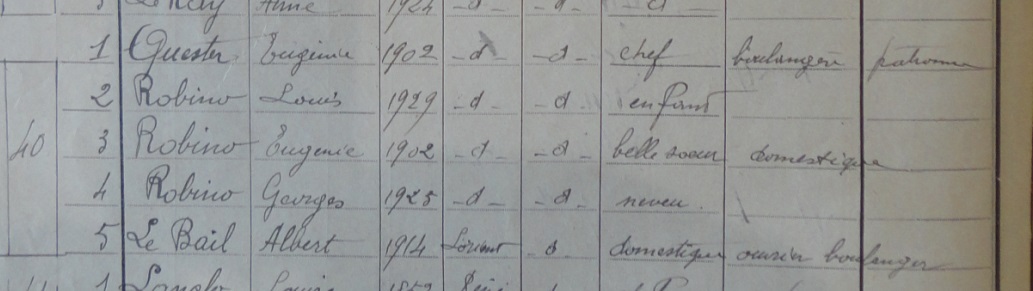 Anne 1924 - d - - d - - d
1 Quester Eugénie 1902 - d - d - chef boulangère patronne
2 Robino Louis 1929 - d - - d - enfant
40 3 Robino Eugenie 1902 - d - - d - belle soeur domestique
4 Robino Georges 1925 - d - - d - neveu.
5 Le Bail Albert 1914 Lorient d domestique ouvrier boulanger
1 Louise